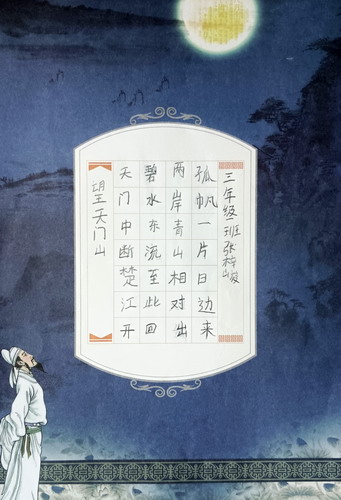 望天门山
天门中断楚江开
碧水东流至此回
两岸青山相对出
孤帆一片日边来
三年级班张梓峻